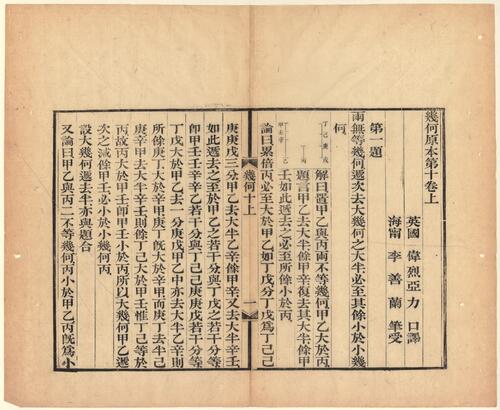 幾何原本第十卷上
英國 偉烈亞力 口譯
海甯 李善蘭 筆受
第一題
兩無等幾何遞次去大幾何之大半必至其餘小於小幾
何
解曰置甲乙與丙兩不等幾何甲乙大於丙
題言甲乙去大半餘甲辛復去其大半餘甲
壬如此遞去之必至所餘小於丙
丁己庚戊
丙
甲壬辛乙
論曰累倍丙必至大於甲乙如丁戊分丁戊為丁己己
幾何十上
一
庚庚戊三分甲乙去大半乙辛餘甲辛又去大半辛壬
如此遞去之至於甲乙之若干分與丁戊之若干分等
即甲壬壬辛辛乙若干分與丁己己庚庚戊若干分等
丁戊大於甲乙去一分庚戊甲乙中亦去大半乙辛則
所餘庚丁大於辛甲庚丁既大於辛甲而庚丁去半己
庚辛甲去大半辛壬則餘丁己大於甲壬惟丁己等於
丙故丙大於甲壬即甲壬小於丙所以大幾何甲乙遞
次之減餘甲壬必小於小幾何丙
設大幾何遞去半亦與題合
又論曰甲乙與丙二不等幾何丙小於甲乙丙既為小